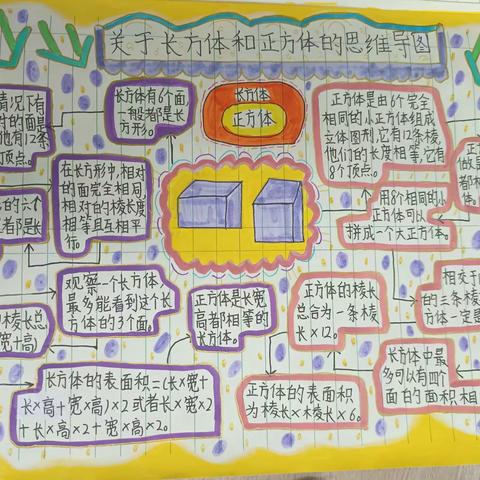 关于长方体和正方体的思维导图
情况下有
对的面是
他有12条
顶点。
长方体有6个面,
一般都是长
方形。
长方体
正方体
正方体是由6个完全
相同的小正方体组成
立体图形,它有12条棱,
他们的长度相等,它有
8个顶点。
正方
做是
都相
体。
在长方形中,相对
的面完全相同,
相对的棱长度
相等且互相平
行。
的六个
都是长
用8个相同的小
正方体可以
拼成一个大正方体。
观察一个长方体,
最多能看到这个长
方体的3个面。
正方体是长宽
高都相等的
长方体。
正方体的棱长
总合为一条棱
长×12。
相交于
的三条棱
方体一定是
棱长总
宽+高)
长方体中最
多可以有四个
面的面积相
长方体的表面积=(长×宽+
长×高+宽×高)×2或者长×宽×2
+长×高×2+宽×高×2。
正方体的表面积
为棱长×棱长×6。